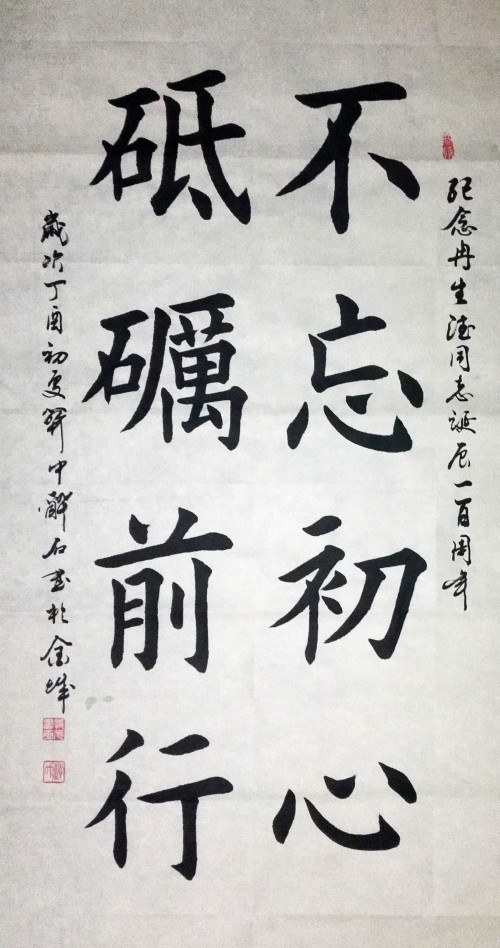 纪念冉生德同志诞辰一百周年
不忘初心
砥礪前行
歲次丁酉初夏中解石书於金城